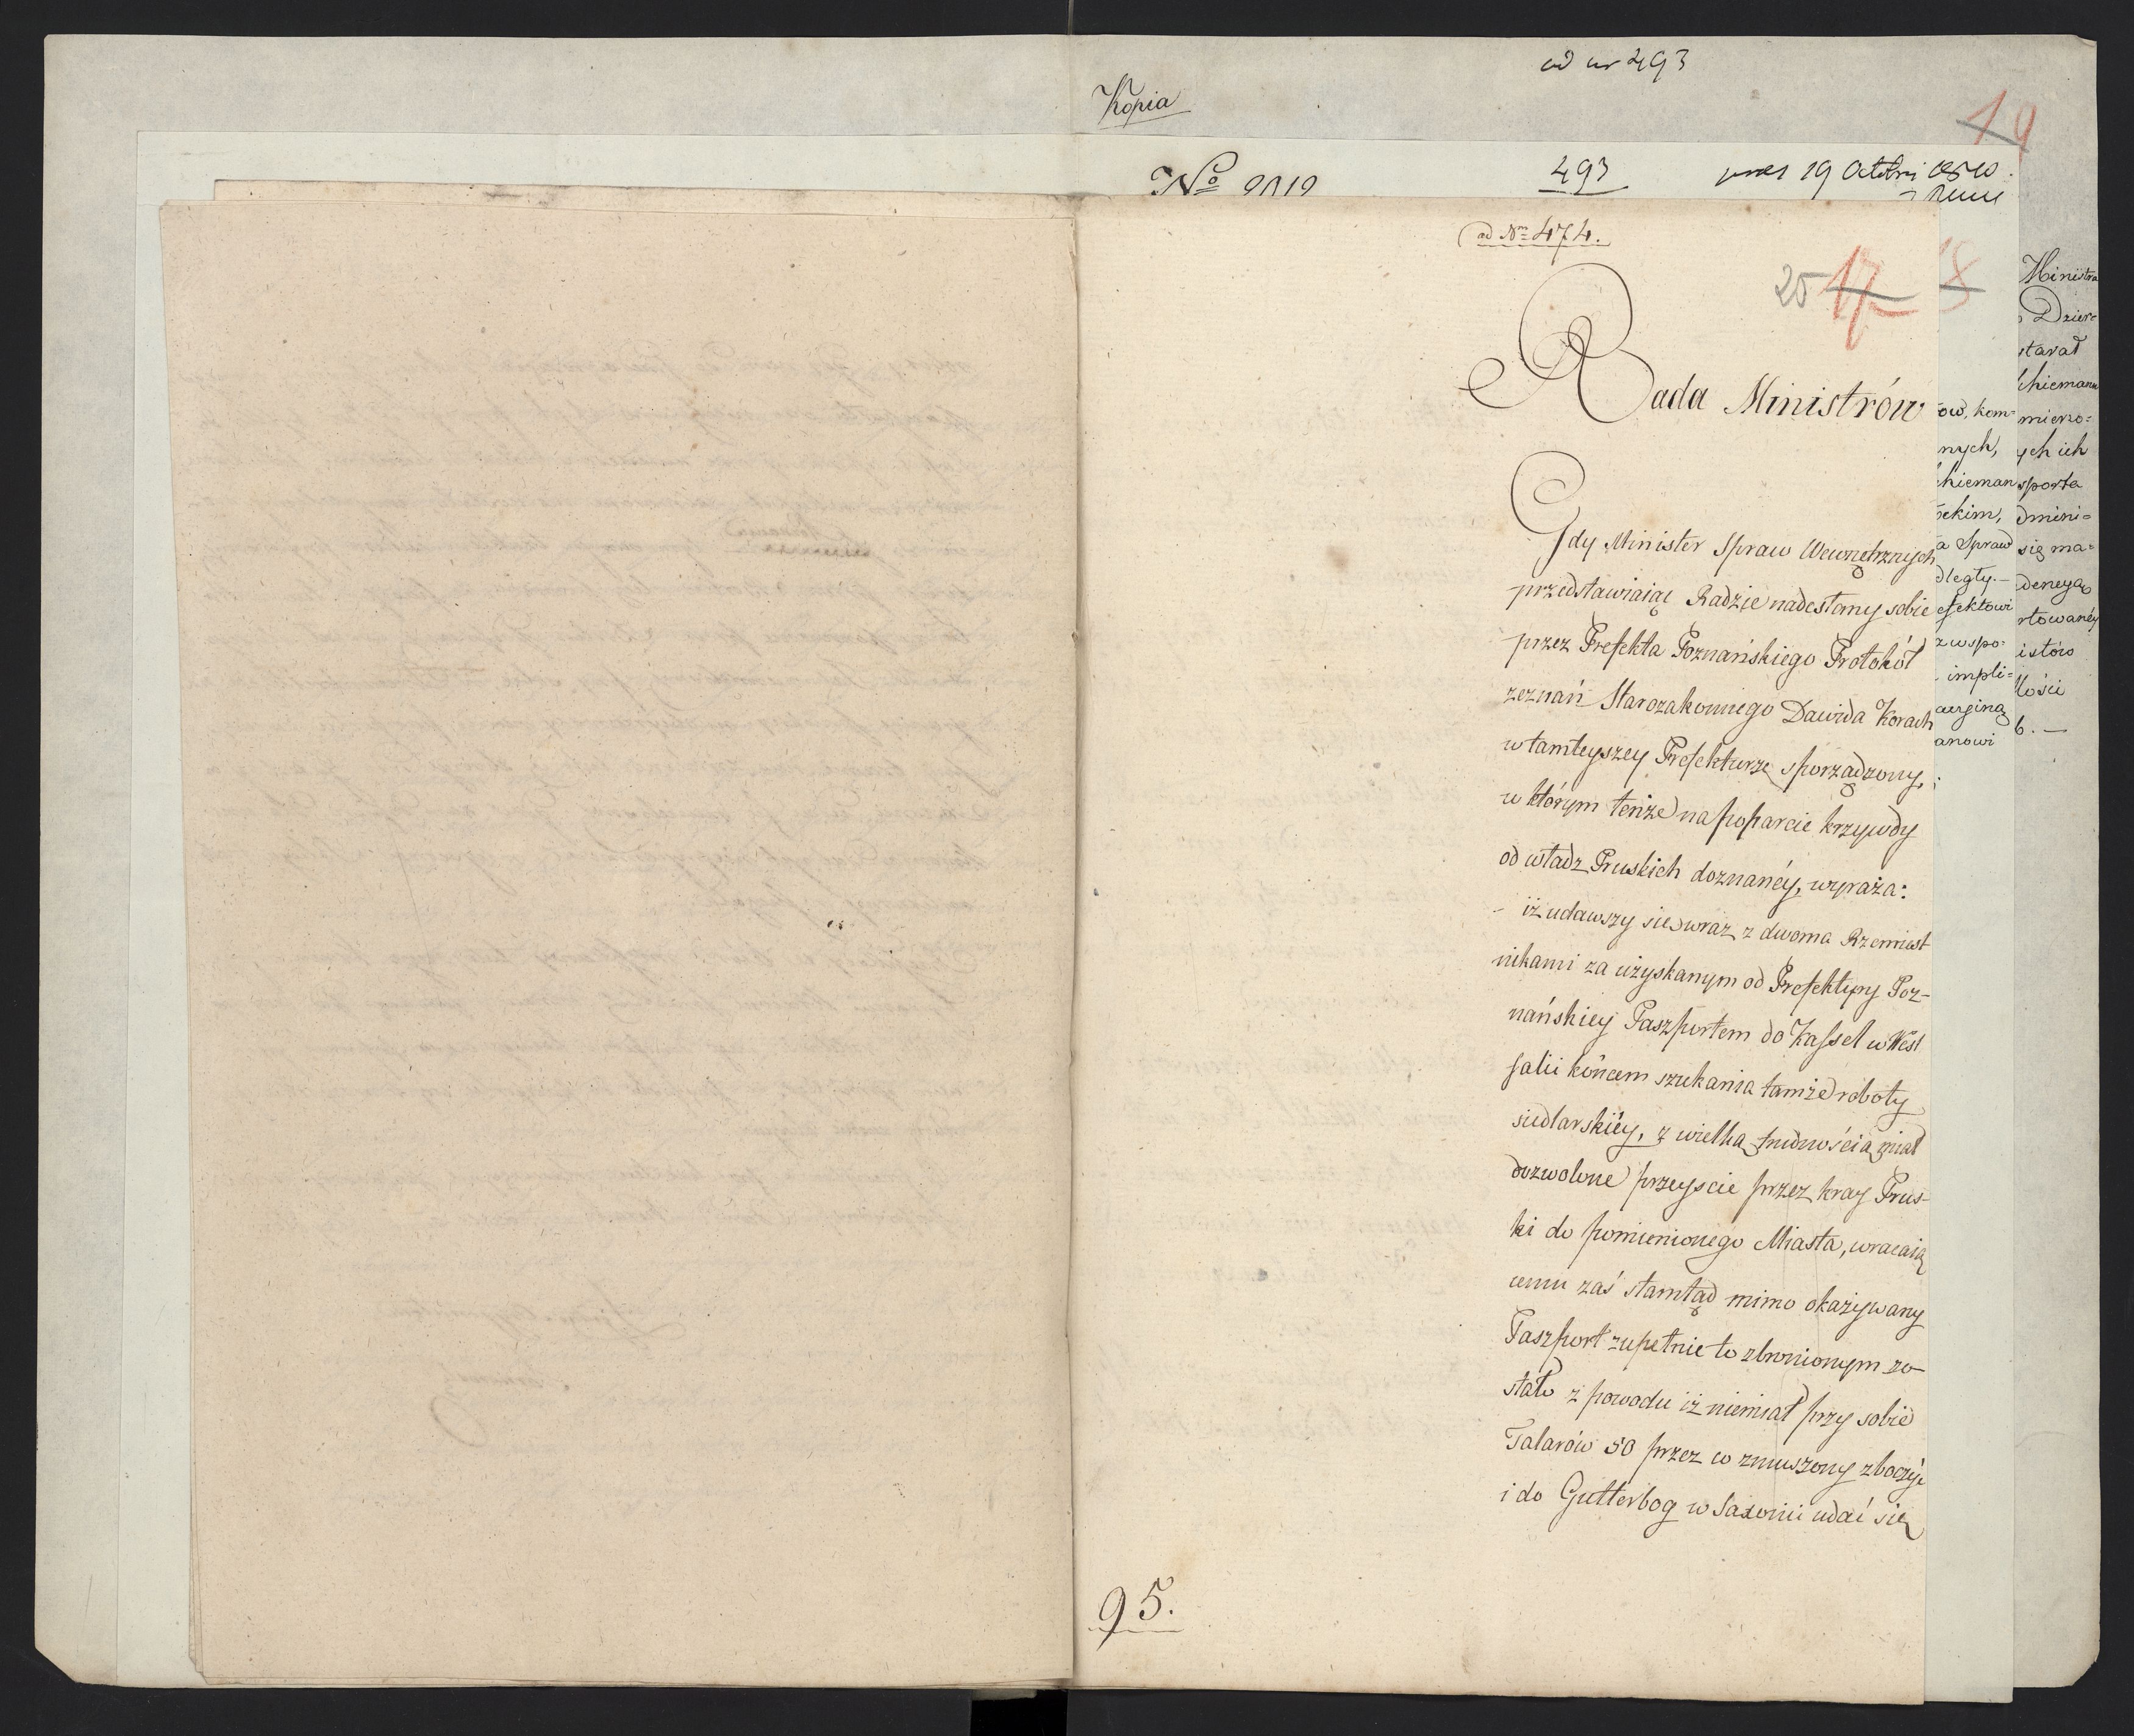 ad nr 493
Kopia
19
No 2012
493
19 Octobri 1810
ad Nrm 474.
20 17 18
Rada Ministrów
Gdy Minister Spraw Wewnętrznych
przedstawiaiąc Radzie nadesłany sobie
przez Prefekta Poznańskiego Protokół
zeznań Starozakonnego Dawida Korach
w tamteyszey Prefekturze sporządzony,
w którym tenże na poparcie krzywdy
od władz Pruskich doznanéy, wyraża:
- iż udawszy się wraz z dwoma Rzemieśl
nikami za uzyskanym od Prefektury Poz-
nańskiey Paszportem do Kassel w West
falii końcem szukania tamże roboty
siedlarskiéy, z wielką trudnością miał
dozwolone przeyście przez kray Prus-
ki do pomienionego Miasta, wracaią
cemu zaś stamtąd mimo okazywany
Paszport zupełnie to zbronionym zo-
stało z powodu iż niemiał przy sobie
Talarów 50 przez co zmuszony zboczyć
i do Gutterbog w Saxonii udać się
95.
ów, kom=
nych,
chieman
ekim,
a Spraw
dległy.-
efektowi
z wspo=
impli=
anowi
Ministra
Dzier=
starał
chieman
mierzo=
ych ich
sporta
dmini=
się ma=
dencya
rtowanéy
istów
łości
6. -